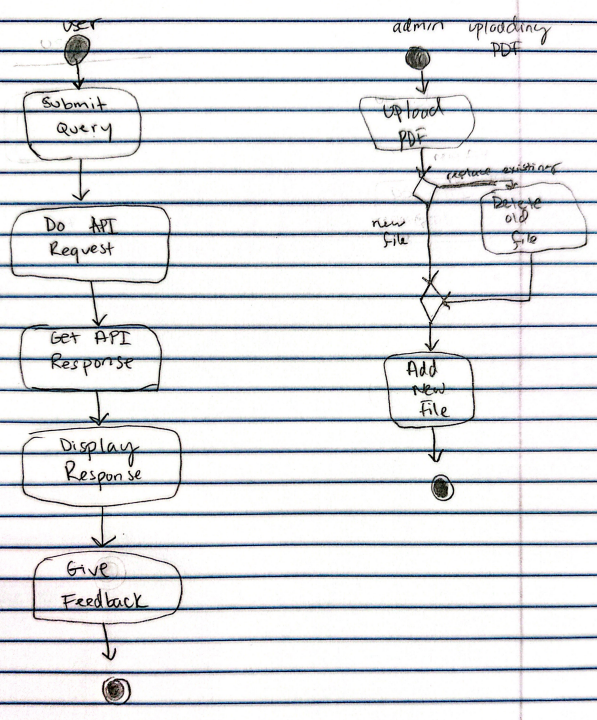 user
Submit
Query
Do API
Request
Get API
Response
Display
Response
Give
Feedback
admin uploading
PDF
Upload
PDF
replace existing
new
file
Delete
old
file
Add
New
File